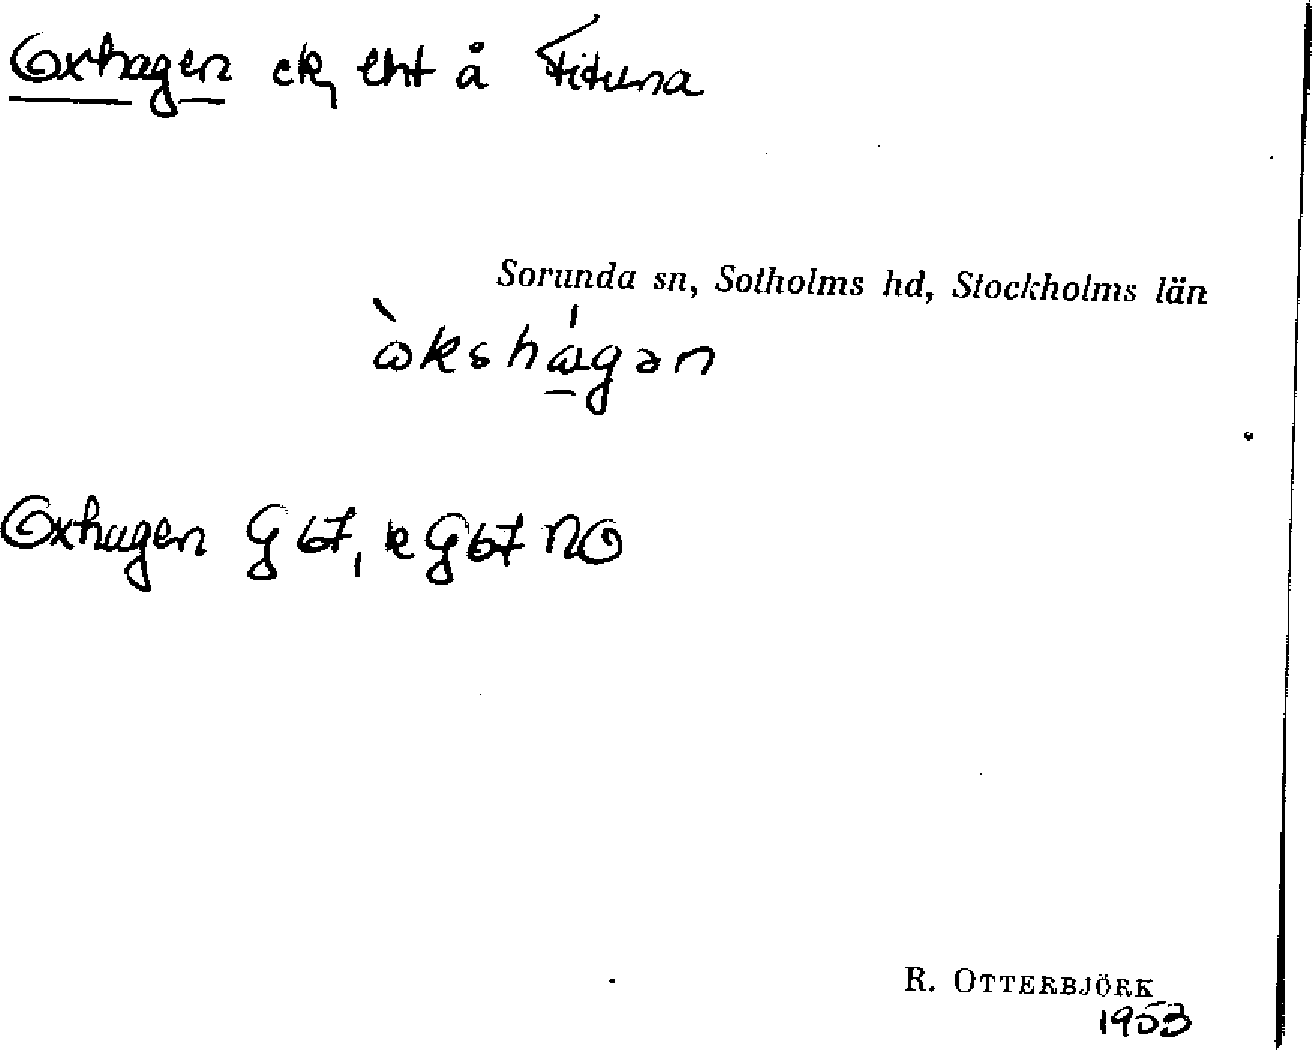 Oxhagen ck, lht å Fituna
Sorunda sn, Sotholms hd, Stockholms län
ὼkshágan
Oxhagen G 67, k G 67 NO
R. OTTERBJÖRK
1953